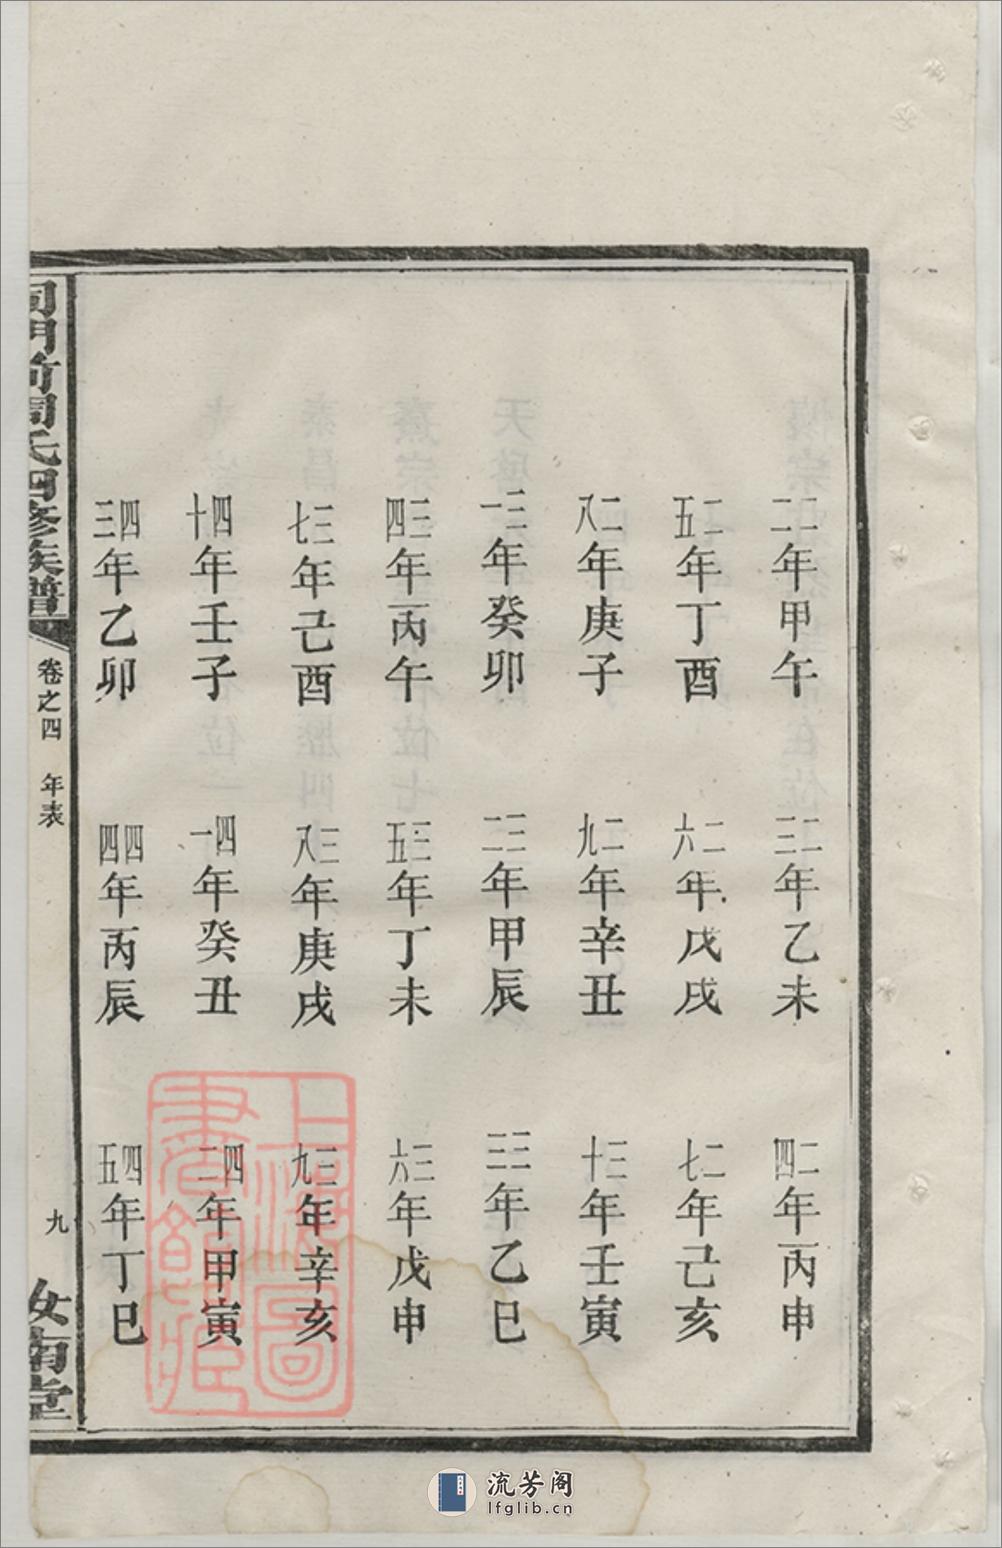 二二年甲午 二三年乙未 二四年丙申
二五年丁酉 二六年戊戌 二七年己亥
二八年庚子 二九年辛丑 三十年壬寅
三一年癸卯 三二年甲辰 三三年乙巳
三四年丙午 三五年丁未 三六年戊申
三七年己酉 三八年庚戌 三九年辛亥
四十年壬子 四一年癸丑 四二年甲寅
四三年乙卯 四四年丙辰 四五年丁巳
周氏四修族譜
卷之四 年表
九
汝南堂
上海圖書館藏
流芳阁
lfglib.cn